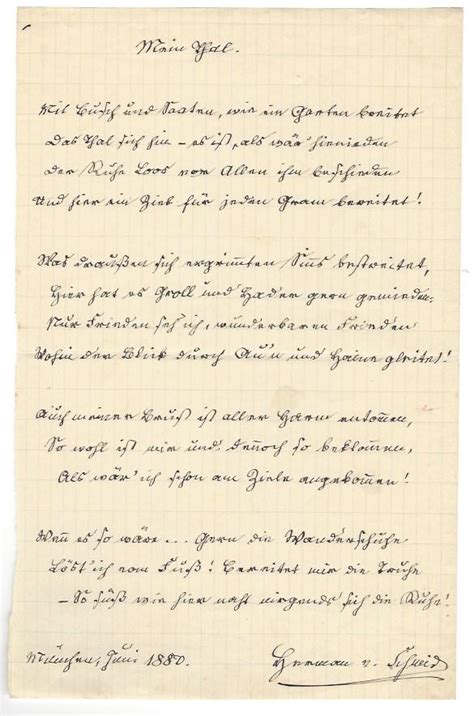 Mein Thal.
Mit Busch und Saaten, wie ein Garten breitet
Das Thal sich hin – es ist, als wär' hienieden
Der Ruhe Loos vor Allen ihm beschieden
Und hier ein Ziel für jeden Gram bereitet!
Was draußen sich ergrimmten Sinns bestreitet,
Hier hat es Groll und Hader gern gemieden –
Nur Frieden seh' ich, wunderbaren Frieden
Wohin der Blick durch Au'n und Haine gleitet!
Auch meiner Brust ist aller Harm entom̅en,
So wohl ist mir und dennoch so beklom̅en,
Als wär' ich schon am Ziele angekom̅en!
Wen̅ es so wäre ... Gern die Wanderschuhe
Löst' ich vom Fuß! Bereitet mir die Truhe
– So süß wie hier naht nirgends sich die Ruhe!
München, Juni 1880.
Herman v. Schmid